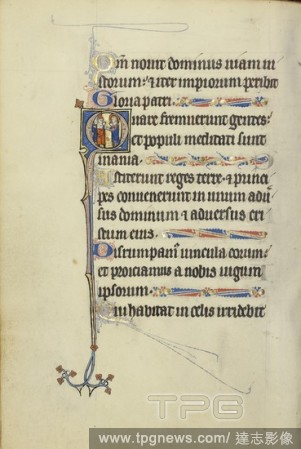 Qm̄ novit dominus viam iu
storum: & iter impiorum peribit
Gloria patri.
Quare fremuerunt gentes:
et populi meditati sunt
inania.
Astiterunt reges terre & princi
pes convenerunt in unum adũ
sus dominum & adversus cri
stum eius.
Disrumpamꝰ vincula eorum:
et proiciamus a nobis iugum
ipsorum.
Qui habitat in celis irridebit
TPG
www.tpgnews.com/達志影像